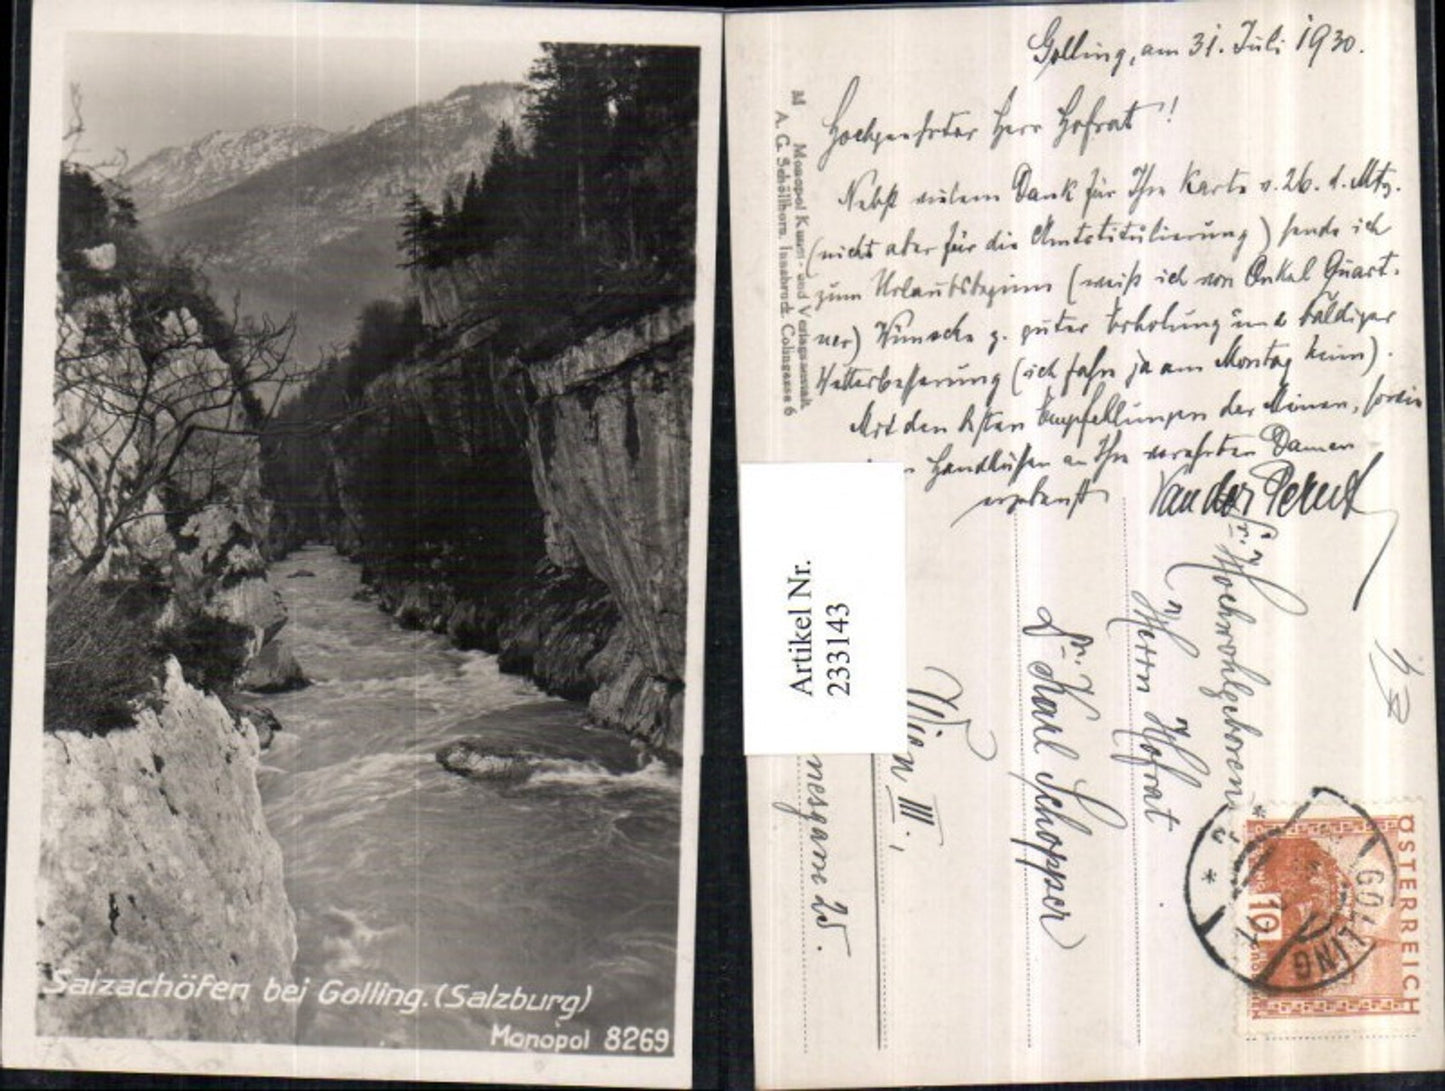 Salzachöfen bei Golling. (Salzburg)
Monopol 8269
Golling, am 31. Juli 1930.
Hochgeehrter Herr Hofrat!
Nebst vielem Dank für Ihre Karte v. 26. d. Mts.
(nicht aber für die Amtstitulierung) sende ich
zum Urlaubsbeginn (weiß ich von Onkel Quart-
ner) Wünsche z. guter Erholung und baldiger
Wetterbesserung (ich fahre ja am Montag heim).
Mit den besten Empfehlungen der Meinen, sowie
Handküssen an Ihre verehrten Damen
ergebenst
Monopol Kunst- und Verlagsanstalt
A. G. Schöllhorn, Innsbruck, Colingasse 6
Artikel Nr.
233143
Hochwohlgeboren
Herrn Hofrat
Dr. Karl Schopper
Wien III.,
nesgasse 25.
ÖSTERREICH
10
GOLLING